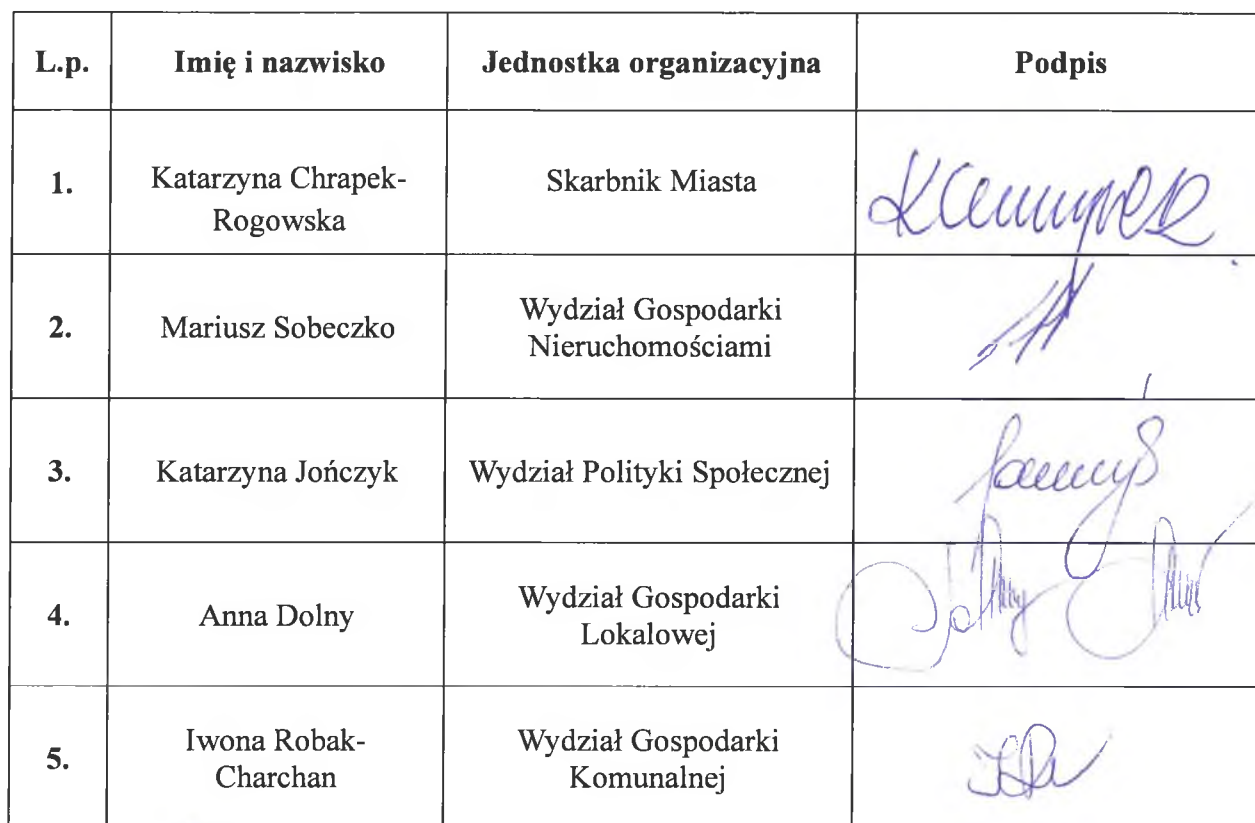 L.p. Imię i nazwisko Jednostka organizacyjna Podpis
1. Katarzyna Chrapek-
Rogowska
Skarbnik Miasta
2. Mariusz Sobeczko
Wydział Gospodarki
Nieruchomościami
3. Katarzyna Jończyk Wydział Polityki Społecznej
4. Anna Dolny
Wydział Gospodarki
Lokalowej
5. Iwona Robak-
Charchan
Wydział Gospodarki
Komunalnej